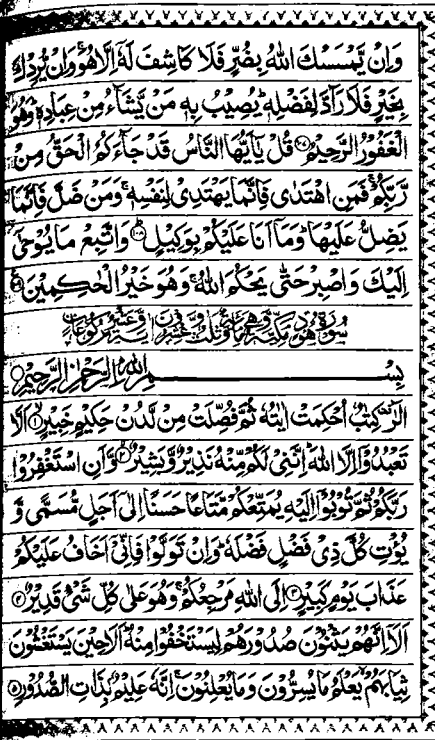 وَاِنْ يَّمْسَسْكَ اللّٰهُ بِضُرٍّ فَلَا كَاشِفَ لَهٗۤ اِلَّا هُوَ ۚ وَاِنْ يُّرِدْكَ
بِخَيْرٍ فَلَا رَآدَّ لِفَضْلِهٖ ؕ يُصِيْبُ بِهٖ مَنْ يَّشَآءُ مِنْ عِبَادِهٖ ؕ وَهُوَ
الْغَفُوْرُ الرَّحِيْمُ ﴿۱۰۷﴾ قُلْ يٰۤاَيُّهَا النَّاسُ قَدْ جَآءَكُمُ الْحَقُّ مِنْ
رَّبِّكُمْ ۚ فَمَنِ اهْتَدٰى فَاِنَّمَا يَهْتَدِيْ لِنَفْسِهٖ ۚ وَمَنْ ضَلَّ فَاِنَّمَا
يَضِلُّ عَلَيْهَا ۚ وَمَاۤ اَنَا عَلَيْكُمْ بِوَكِيْلٍ ﴿۱۰۸﴾ وَاتَّبِعْ مَا يُوْحٰۤى
اِلَيْكَ وَاصْبِرْ حَتّٰى يَحْكُمَ اللّٰهُ ۚ وَهُوَ خَيْرُ الْحٰكِمِيْنَ ﴿۱۰۹﴾
سُوْرَةُ هُوْدٍ مَكِّيَّةٌ وَّهِيَ مِائَةٌ وَّثَلٰثٌ وَّعِشْرُوْنَ اٰيَةً وَّعَشْرُ رُكُوْعَاتٍ
بِسْمِ اللّٰهِ الرَّحْمٰنِ الرَّحِيْمِ
الٓرٰ ۫ كِتٰبٌ اُحْكِمَتْ اٰيٰتُهٗ ثُمَّ فُصِّلَتْ مِنْ لَّدُنْ حَكِيْمٍ خَبِيْرٍ ﴿۱﴾ اَلَّا
تَعْبُدُوْۤا اِلَّا اللّٰهَ ؕ اِنَّنِيْ لَكُمْ مِّنْهُ نَذِيْرٌ وَّبَشِيْرٌ ﴿۲﴾ وَّاَنِ اسْتَغْفِرُوْا
رَبَّكُمْ ثُمَّ تُوْبُوْۤا اِلَيْهِ يُمَتِّعْكُمْ مَّتَاعًا حَسَنًا اِلٰۤى اَجَلٍ مُّسَمًّى وَّ
يُؤْتِ كُلَّ ذِيْ فَضْلٍ فَضْلَهٗ ؕ وَاِنْ تَوَلَّوْا فَاِنِّيْۤ اَخَافُ عَلَيْكُمْ
عَذَابَ يَوْمٍ كَبِيْرٍ ﴿۳﴾ اِلَى اللّٰهِ مَرْجِعُكُمْ ۚ وَهُوَ عَلٰى كُلِّ شَيْءٍ قَدِيْرٌ ﴿۴﴾
اَلَاۤ اِنَّهُمْ يَثْنُوْنَ صُدُوْرَهُمْ لِيَسْتَخْفُوْا مِنْهُ ؕ اَلَا حِيْنَ يَسْتَغْشُوْنَ
ثِيَابَهُمْ ۙ يَعْلَمُ مَا يُسِرُّوْنَ وَمَا يُعْلِنُوْنَ ۚ اِنَّهٗ عَلِيْمٌۢ بِذَاتِ الصُّدُوْرِ ﴿۵﴾